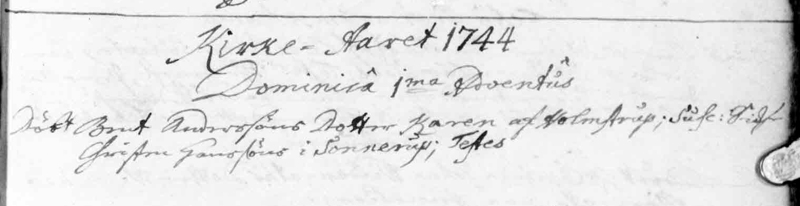 Kirke-Aaret 1744
Dominicâ 1ma Adventûs
Døbt Bent Anderssøns Dotter Karen af Holmstrup; Susc:
Christen Hanssøns i Sønnerup; Testes